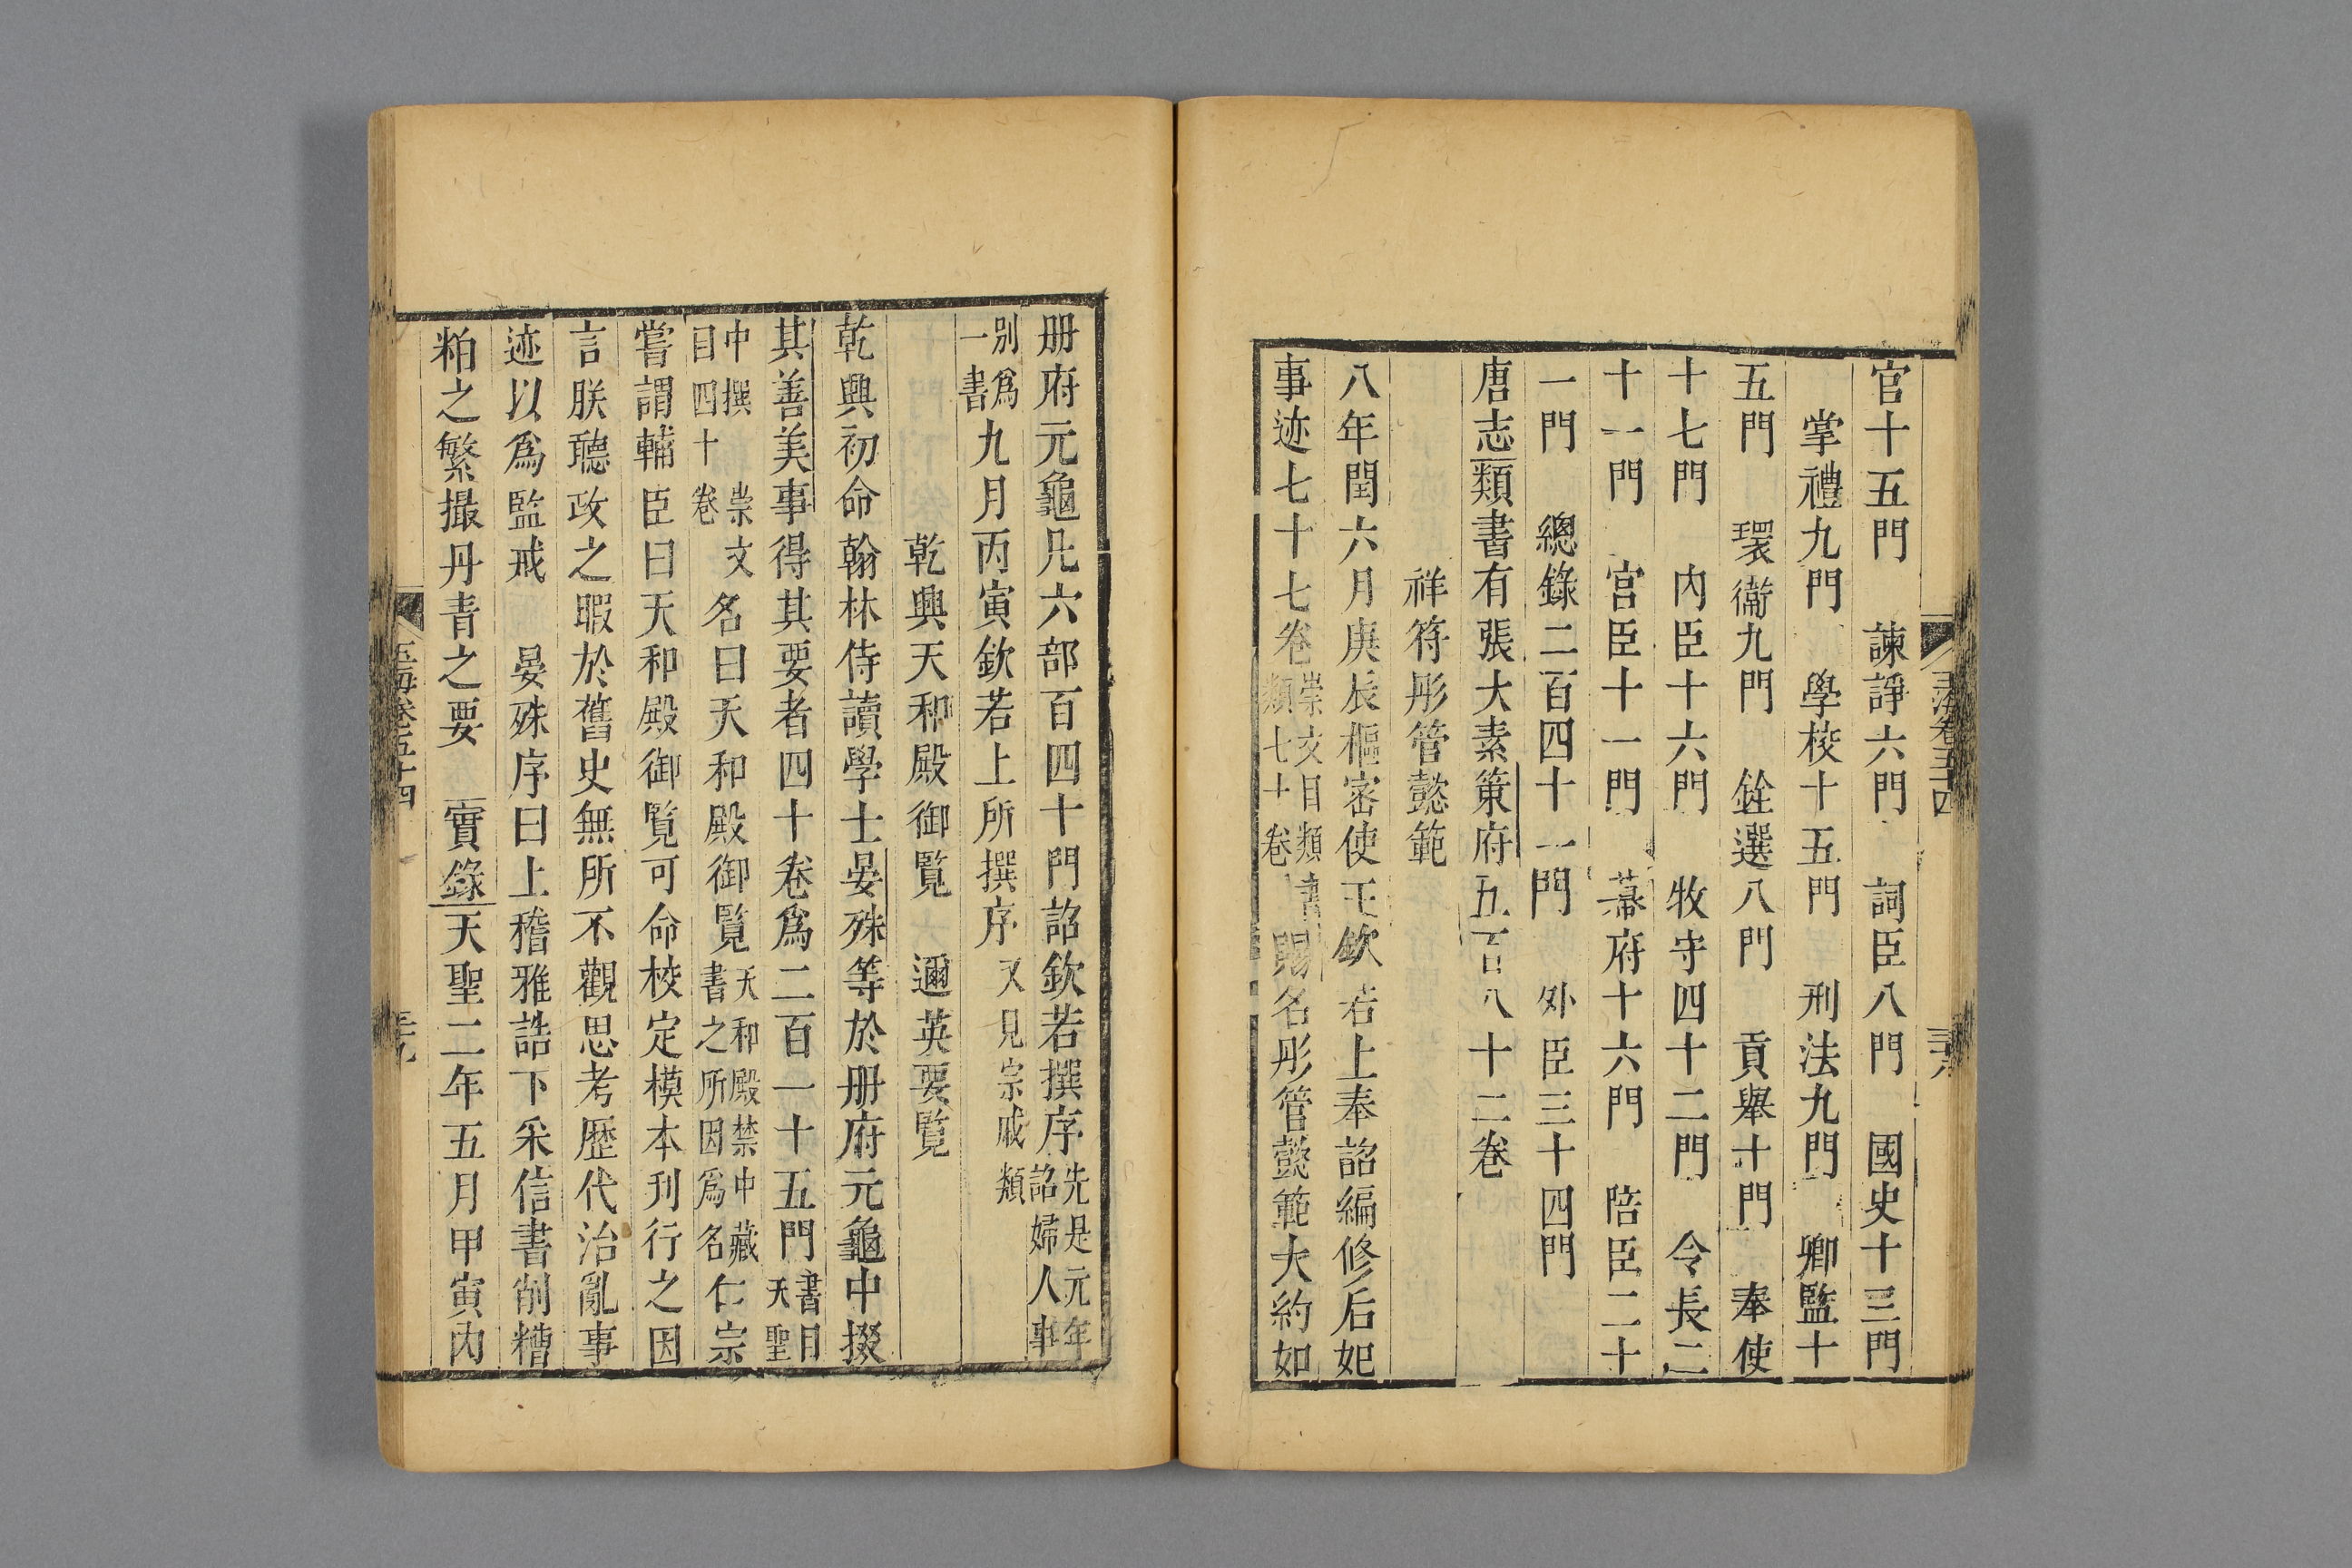 官十五門　諫諍六門　詞臣八門　國史十三門
掌禮九門　學校十五門　刑法九門　卿監十
五門　環衞九門　銓選八門　貢舉十門　奉使
十七門　內臣十六門　牧守四十二門　令長二
十一門　宮臣十一門　幕府十六門　陪臣二十
一門　總錄二百四十一門　外臣三十四門
唐志類書有張大素策府五百八十二卷
祥符彤管懿範
八年閏六月庚辰樞密使王欽若上奉詔編修后妃
事迹七十七卷崇文目類書類七十卷賜名彤管懿範大約如
玉海卷五十四
册府元龜凡六部百四十門詔欽若撰序先是元年詔婦人事
別爲一書九月丙寅欽若上所撰序又見宗戚類
乾興天和殿御覽　邇英要覽
乾興初命翰林侍讀學士晏殊等於册府元龜中掇
其善美事得其要者四十卷爲二百一十五門書目天聖
中撰崇文目四十卷名曰天和殿御覽天和殿禁中藏書之所因爲名仁宗
嘗謂輔臣曰天和殿御覽可命校定模本刊行之因
言朕聽政之暇於舊史無所不觀思考歷代治亂事
迹以爲監戒　晏殊序曰上稽雅誥下采信書削糟
粕之繁撮丹青之要　實錄天聖二年五月甲寅內
玉海卷五十四